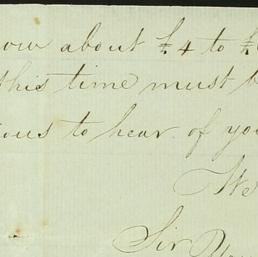 now about £4 to £
this time must b
ious to hear of you
We
Sir You